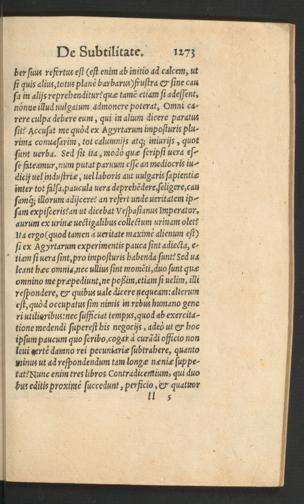 De Subtilitate. 1273
ber suus refertus est (est enim ab initio ad calcem, ut
si quis alius, totus planè barbarus) frustra & sine cau
sa in alijs reprehenditur? quæ tamē etiam si adessent,
nónne illud uulgatum admonere poterat, Omni ca-
rere culpa debere eum, qui in alium dicere paratus
sit? Accusat me quòd ex Agyrtarum imposturis plu-
rima conuasarim, tot calumnijs atq; iniurijs, quot
sunt uerba. Sed sit ita, modò quæ scripsi uera es-
se fateamur, num putat paruum esse an mediocris iu-
dicij uel industriæ, uel laboris aut uulgaris sapientiæ
inter tot falsa, paucula uera deprehēdere, seligere, cau
samq; illorum adijcere? an refert unde ueritatem ip-
sam expisceris? an ut dicebat Vespasianus Imperator,
aurum ex urinæ uectigalibus collectum urinam olet?
Ita ergo (quod tamen à ueritate maximè alienum est)
si ex Agyrtarum experimentis pauca sint adiecta, e-
tiam si uera sint, pro imposturis habenda sunt? Sed ua
leant hæc omnia, nec ullius sint momēti, duo sunt quæ
omnino me præpediunt, ne possim, etiam si uelim, illi
respondere, & quibus uale dicere nequeam: alterum
est, quòd occupatus sim nimis in rebus humano gene
ri utilioribus: nec sufficiat tempus, quod ab exercita-
tione medendi superest his negocijs, adeò ut & hoc
ipsum paucum quo scribo, cogar à curādi officio non
leui certè damno rei pecuniariæ subtrahere, quanto
minus ut ad respondendum tam longæ næniæ suppe-
tat? Nunc enim tres libros Contradicentium, qui duo
bus editis proximè succedunt, perficio, & quatuor
ll 5